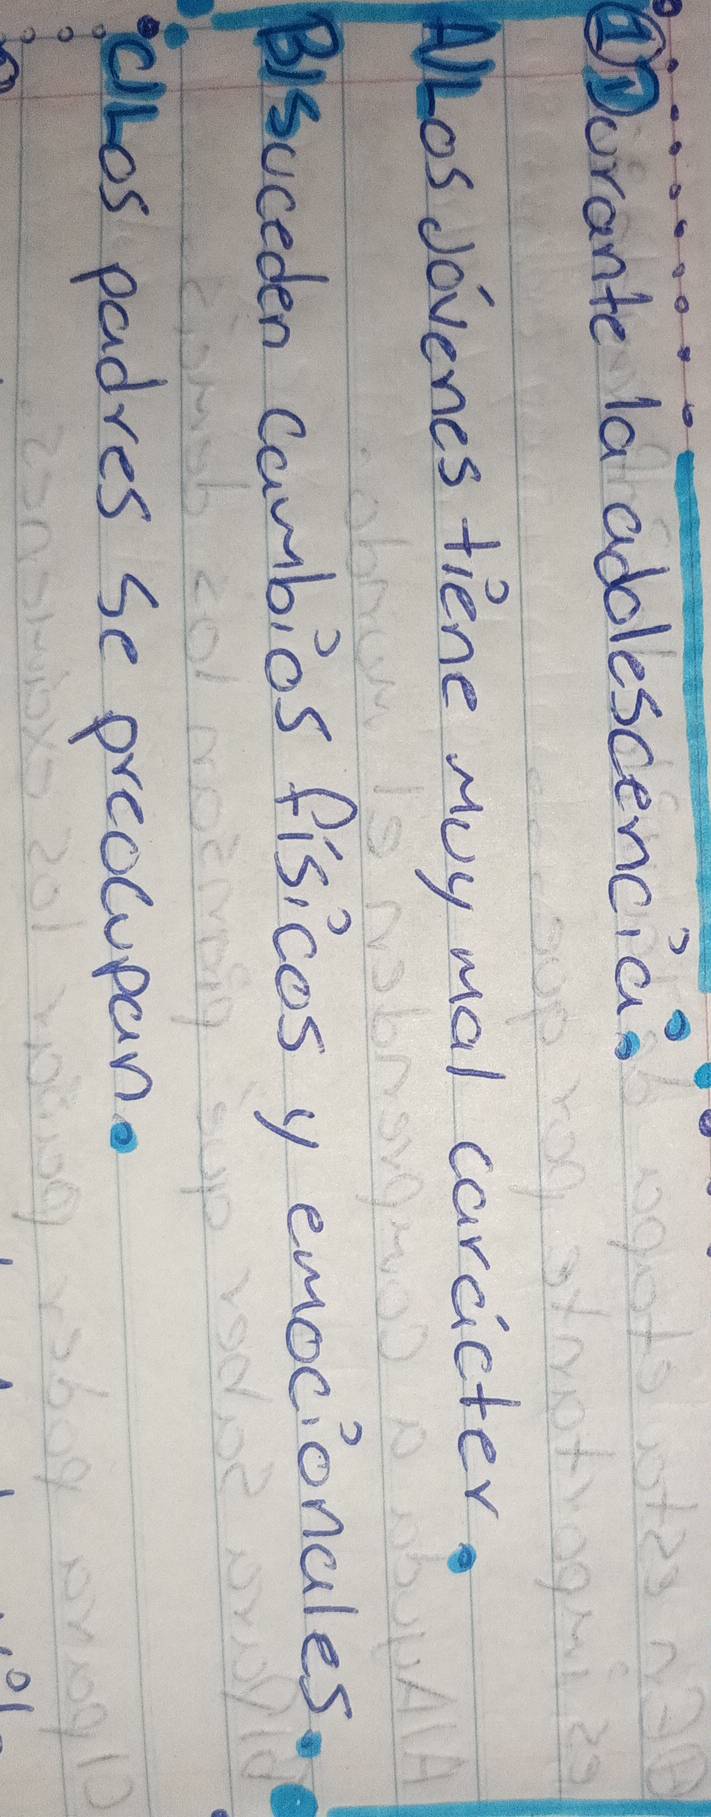 1) Durante la adolescencia:
A) Los Jóvenes tiene muy mal carácter.
B) Suceden cambios físicos y emocionales.
C) Los padres se preocupan.